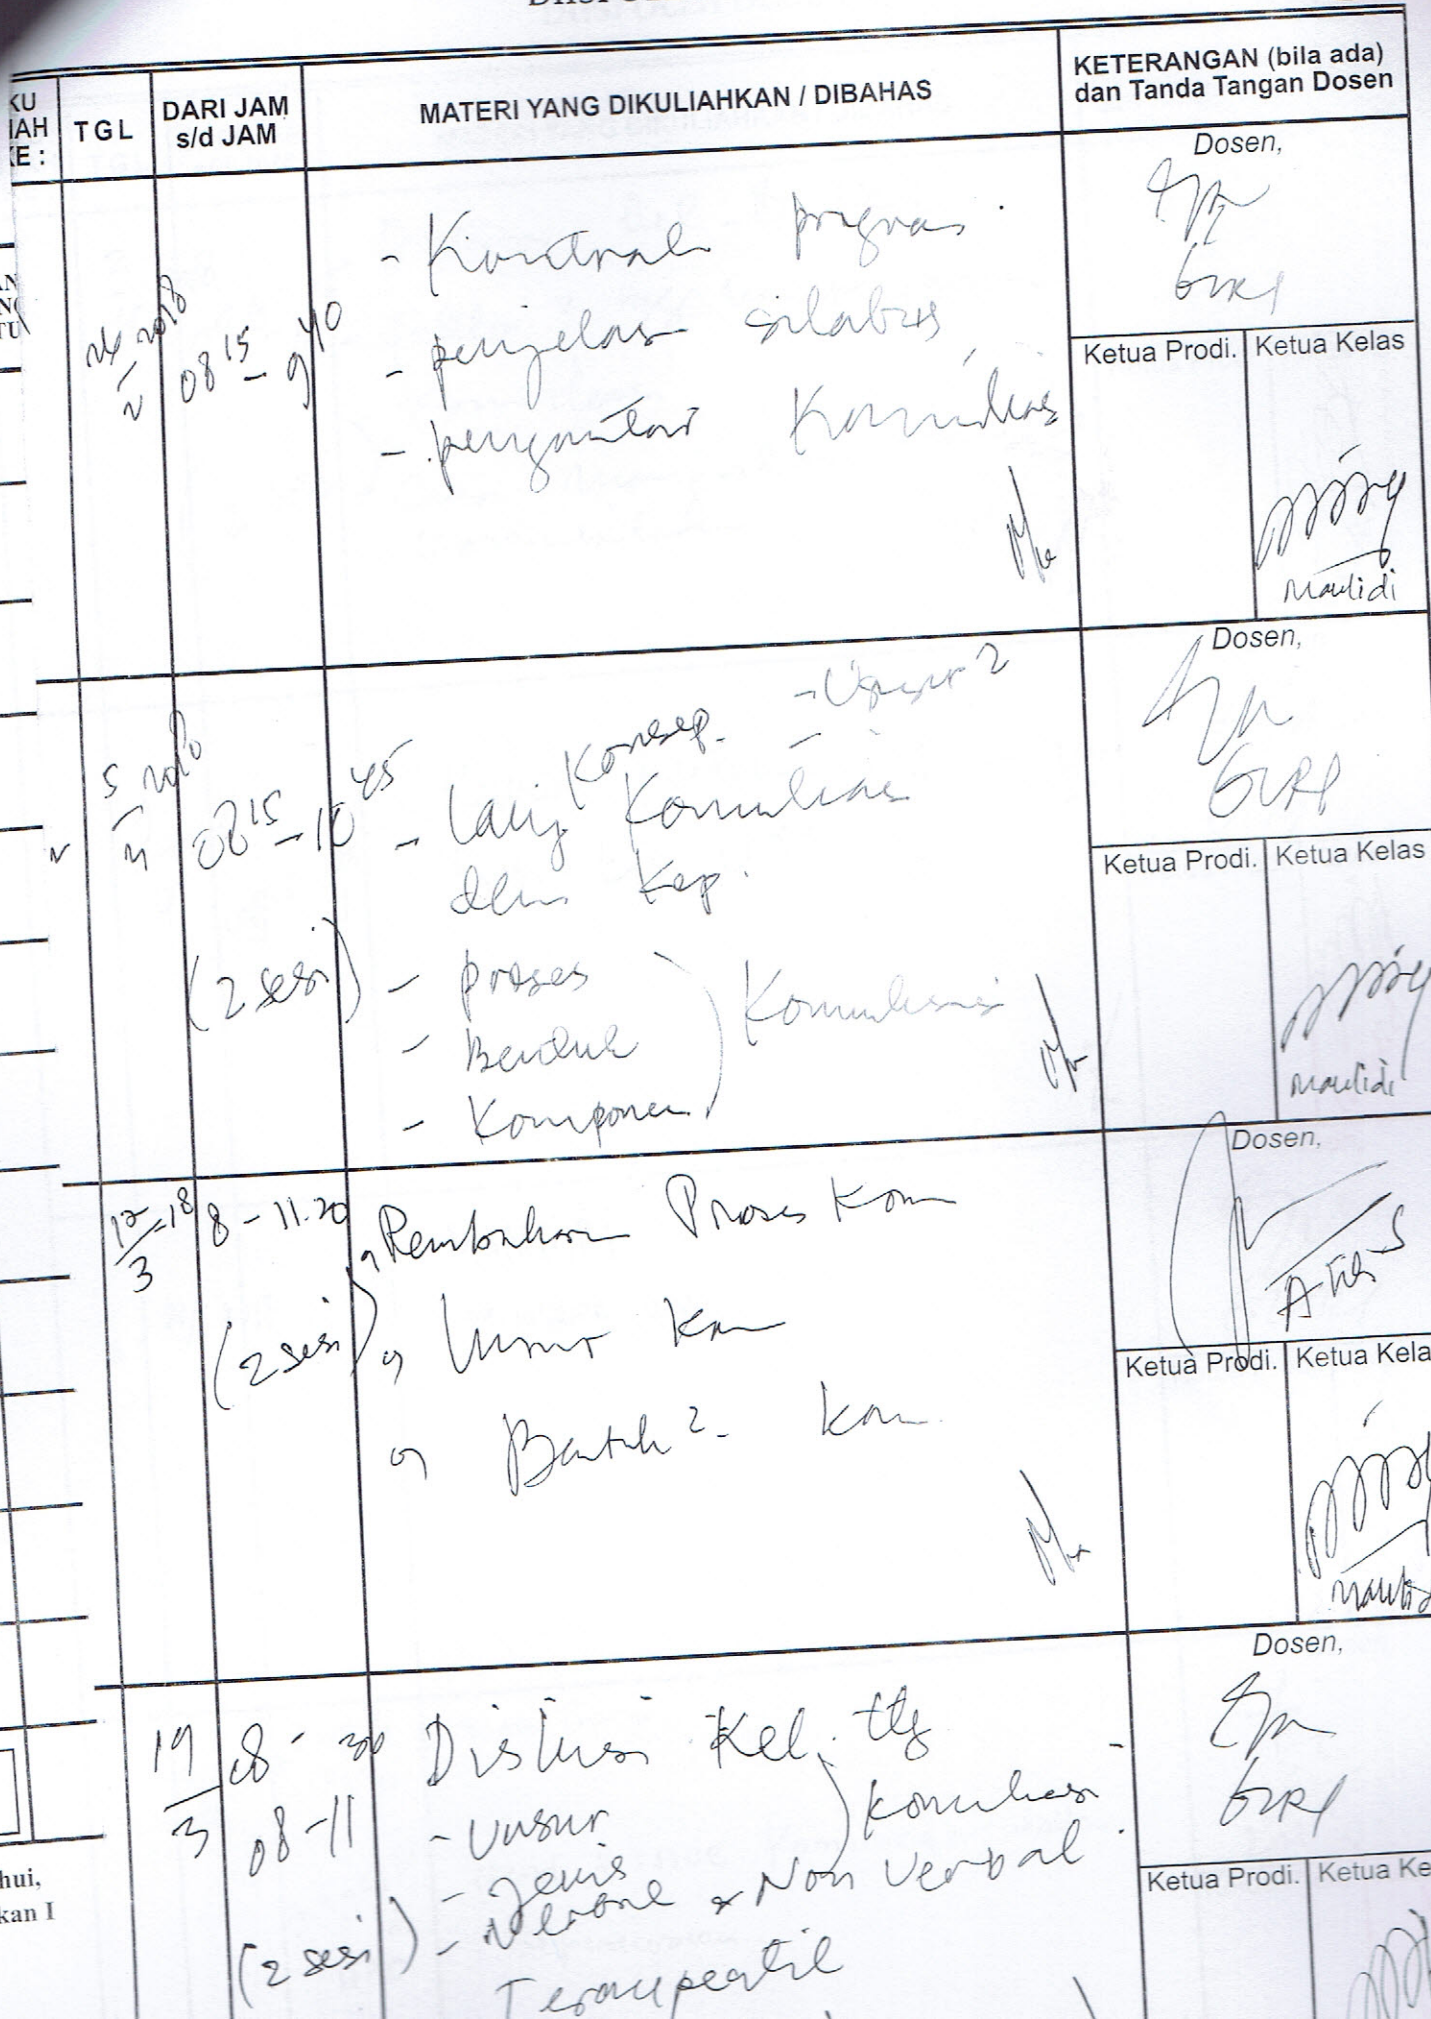 KU
IAH
KE :
TGL
DARI JAM
s/d JAM
MATERI YANG DIKULIAHKAN / DIBAHAS
KETERANGAN (bila ada)
dan Tanda Tangan Dosen
2018
08 15 - 9 40
- Kontrak program
- penjelasan silabus
- pengantar Komunikasi
Dosen,
Ketua Prodi.
Ketua Kelas
Maulidi
5/3 2018
08 15 - 10 45
(2 sesi)
- Konsep
Komunikasi
dlm Kep.
- proses
- Bentuk
- Komponen
Komunikasi
Dosen,
Ketua Prodi.
Ketua Kelas
Maulidi
12/3 - 18
8 - 11.20
(2 sesi)
Pembahasan Proses Kom
Unsur Kom
Bentuk 2 Kom
Dosen,
Ketua Prodi.
Ketua Kela
19/3
08 - 11
(2 sesi)
Diskusi Kel. ttg
- Unsur
- Jenis
Komunikasi
- Verbal & Non Verbal
Terapeutik
Dosen,
Ketua Prodi.
Ketua Ke
hui,
kan I